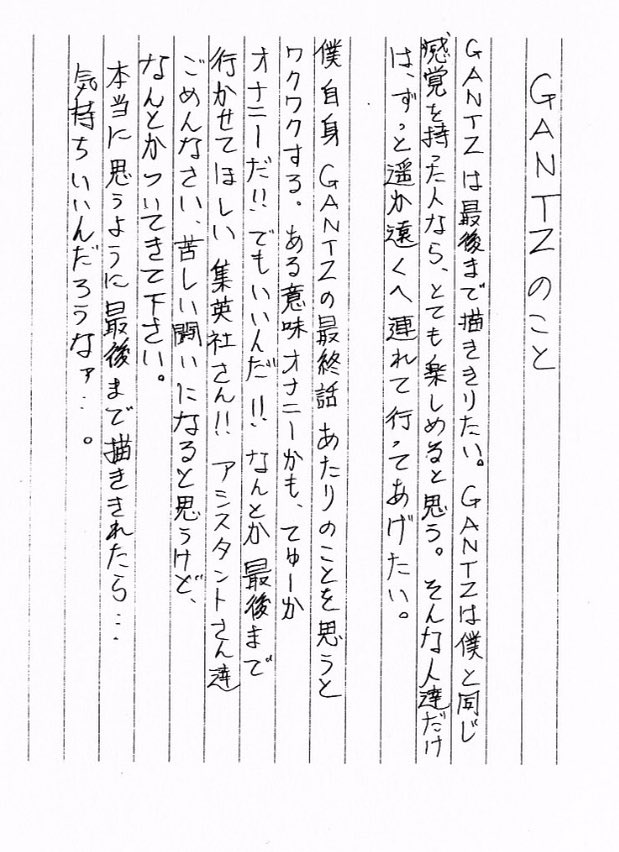 GANTZのこと
GANTZは最後まで描ききりたい。GANTZは僕と同じ
感覚を持った人なら、とても楽しめると思う。そんな人達だけ
は、ずっと遥か遠くへ連れて行ってあげたい。
僕自身GANTZの最終話あたりのことを思うと
ワクワクする。ある意味オナニーかも、てゆーか
オナニーだ!!でもいいんだ!!なんとか最後まで
行かせてほしい集英社さん!!アシスタントさん達
ごめんなさい、苦しい闘いになると思うけど、
なんとかついてきて下さい。
本当に思うように最後まで描きされたら…
気持ちいいんだろうなァ…。